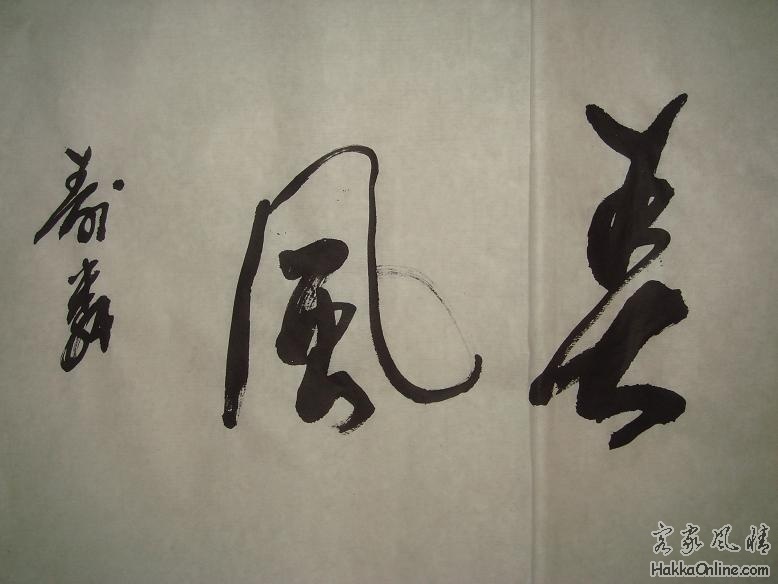 美風
寿
客家风情
HakkaOnline.com